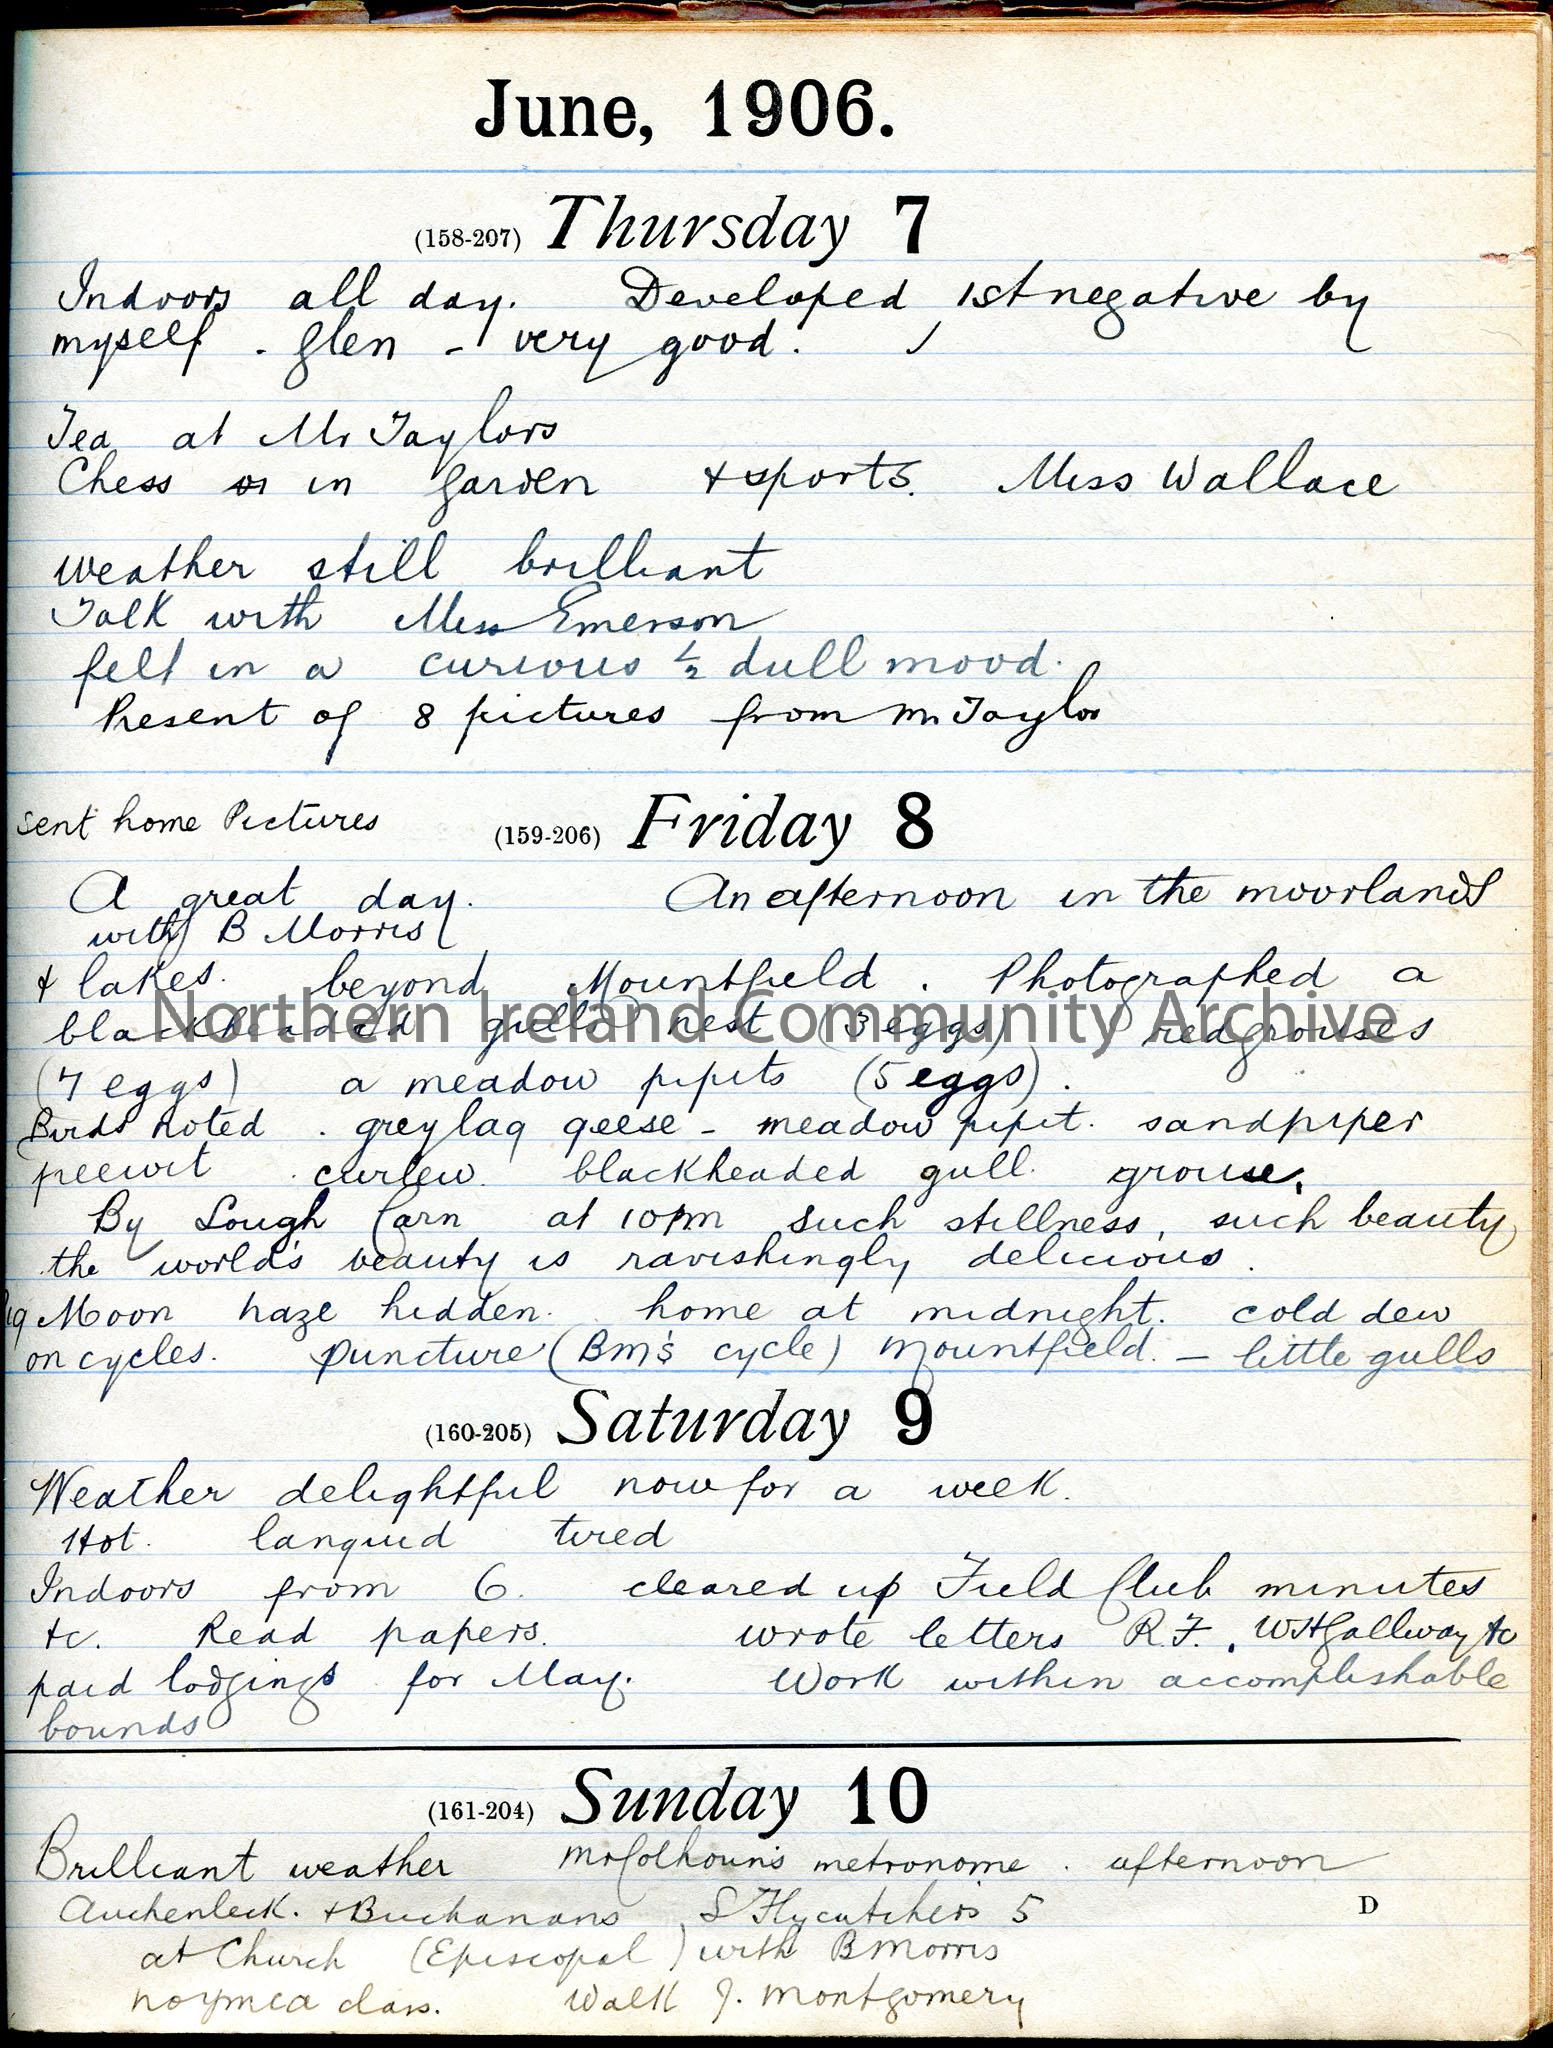 June, 1906.
(158-207) Thursday 7
Indoors all day. Developed 1st negative by
myself - Glen - very good.
Tea at Mr Taylors
Chess in garden & sports. Miss Wallace
Weather still brilliant
Talk with Miss Emerson
felt in a curious ½ dull mood.
Present of 8 pictures from Mr Taylor
sent home Pictures
(159-206) Friday 8
A great day. An afternoon in the moorlands
with B Morris
& lakes. beyond Mountfield. Photographed a
blackheaded gulls nest (3 eggs) redgrouses
(7 eggs) a meadow pipits (5 eggs).
Birds noted. greylag geese - meadow pipit. sandpiper
peewit. curlew. blackheaded gull. grouse.
By Lough Carn at 10pm such stillness, such beauty
the world's beauty is ravishingly delicious.
Big Moon haze hidden. home at midnight. cold dew
on cycles. Puncture (BM's cycle) Mountfield. - little gulls
(160-205) Saturday 9
Weather delightful now for a week.
Hot. languid tired
Indoors from 6. cleared up Field Club minutes
&c. Read papers. wrote letters R.F., WHGallway &c
paid lodgings for May. Work within accomplishable
bounds
(161-204) Sunday 10
Brilliant weather Mr Colhoun's metronome. afternoon
Auchenleck. & Buchanans S Flycatchers 5
D
at Church (Episcopal) with B Morris
no ymca class. Walk J. Montgomery
Northern Ireland Community Archive